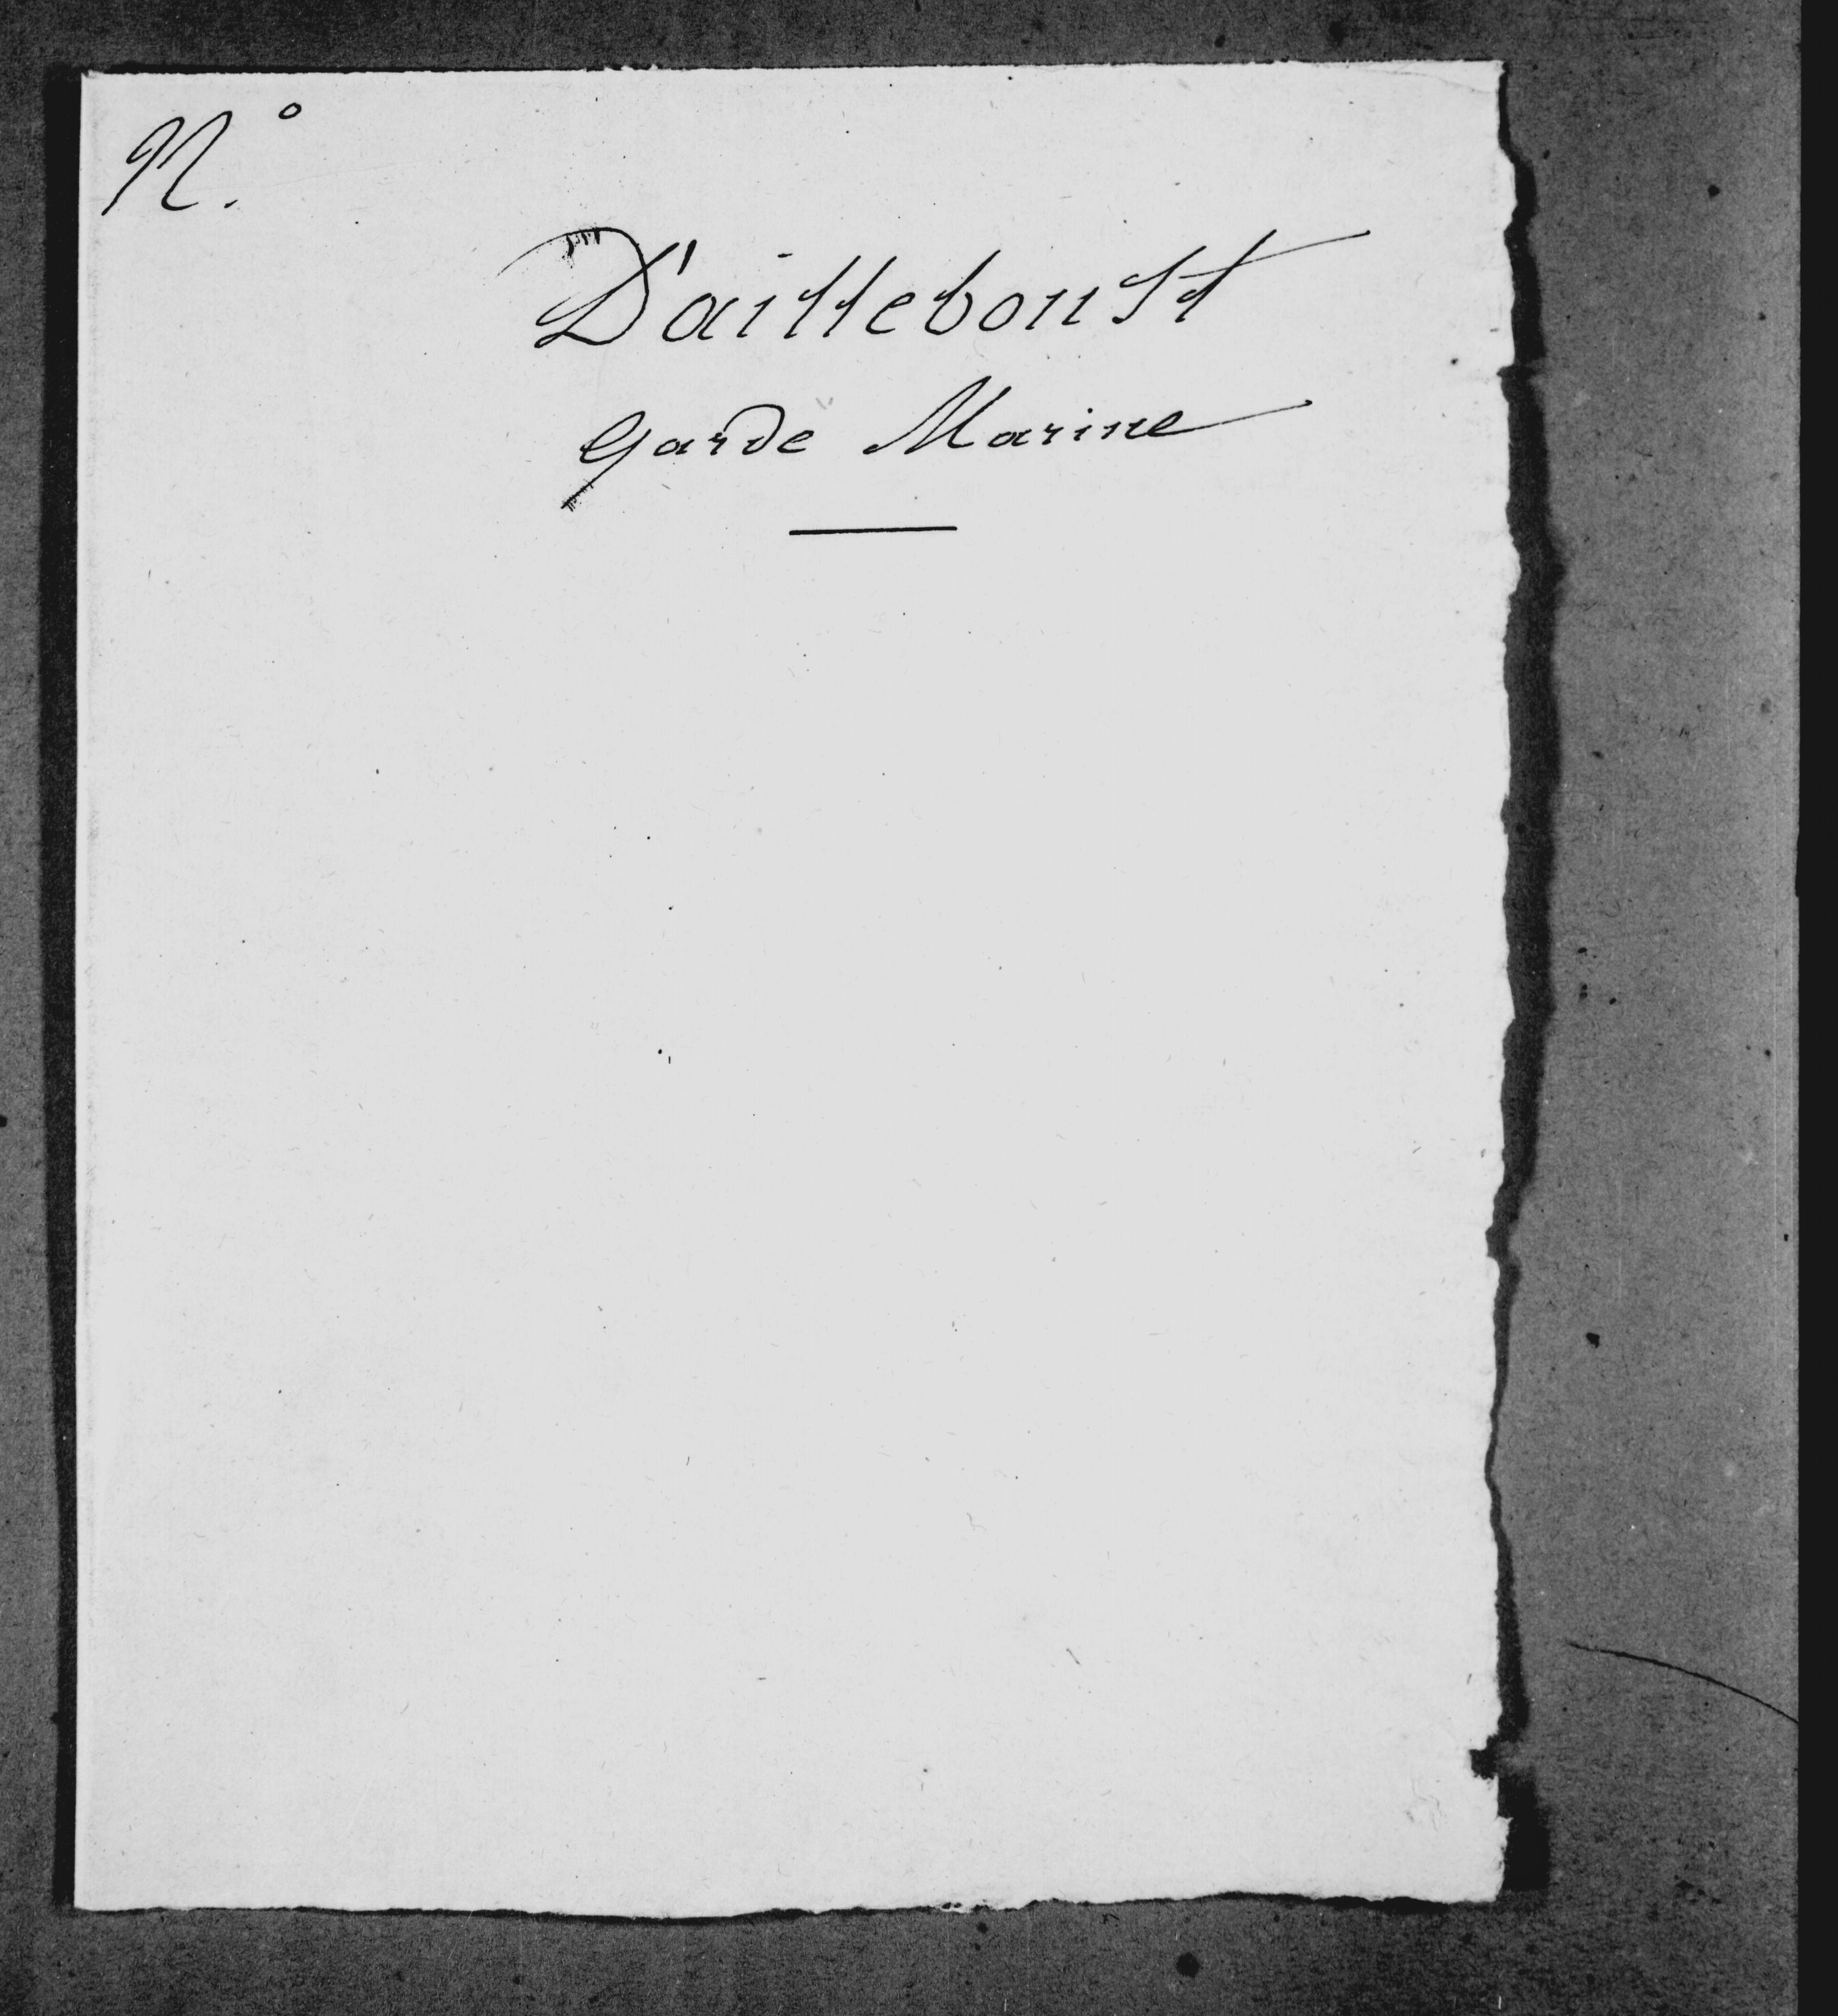 N.°
D'ailleboust
Garde Marine